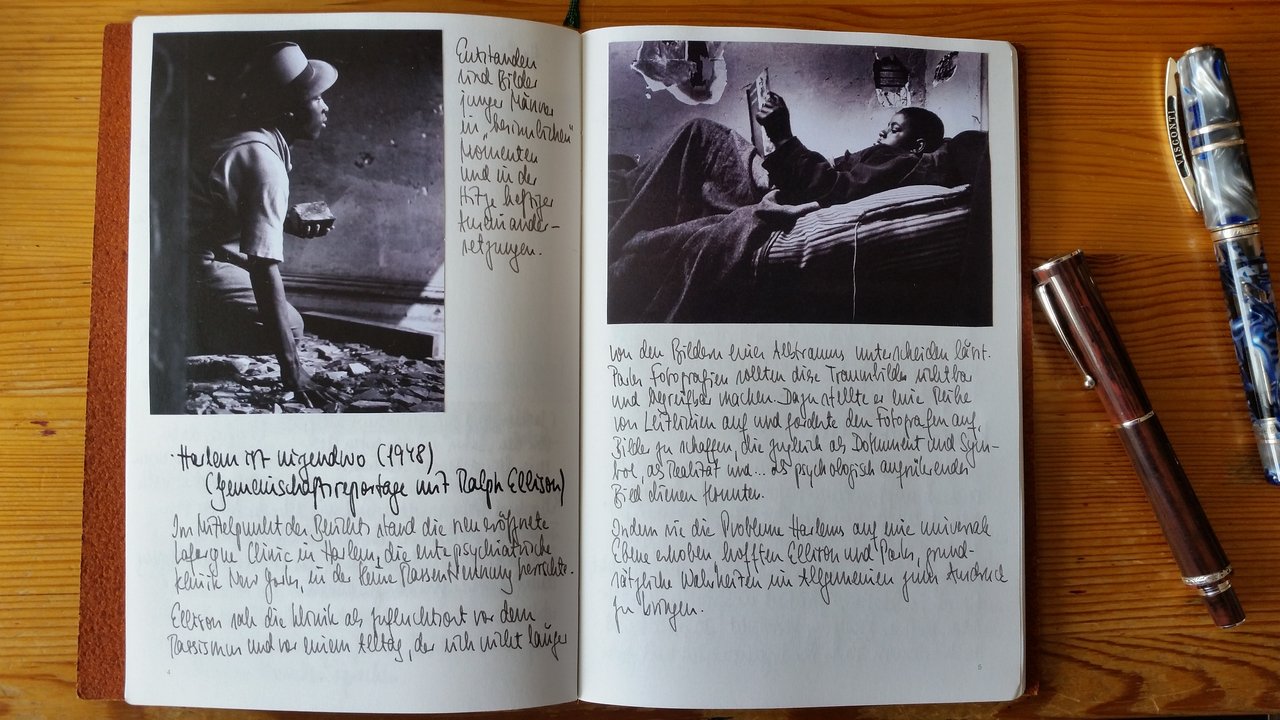 Entstanden
sind Bilder
junger Männer
in „heimlichen"
Momenten
und in der
Hitze heftiger
Auseinander-
setzungen.
Harlem ist nirgendwo (1948)
(Gemeinschaftsreportage mit Ralph Ellison)
Im Mittelpunkt des Berichts stand die neueröffnete
Lafargue Clinic in Harlem, die erste psychiatrische
Klinik New Yorks, in der keine Rassentrennung herrschte.
Ellison sah die Klinik als Zufluchtsort vor dem
Rassismus und vor einem Alltag, der sich nicht länger
4
von den Bildern eines Alptraums unterscheiden lässt.
Parks Fotografien sollten diese Traumbilder sichtbar
und begreifbar machen. Dazu stellte er eine Reihe
von Leitlinien auf und forderte den Fotografen auf,
Bilder zu schaffen, die zugleich als Dokument und Sym-
bol, als Realität und... als psychologisch aufrührendes
Bild dienen konnten.
Indem sie die Probleme Harlems auf eine universale
Ebene erhoben hofften Ellison und Parks, grund-
sätzliche Wahrheiten im Allgemeinen zum Ausdruck
zu bringen.
5
VISCONTI